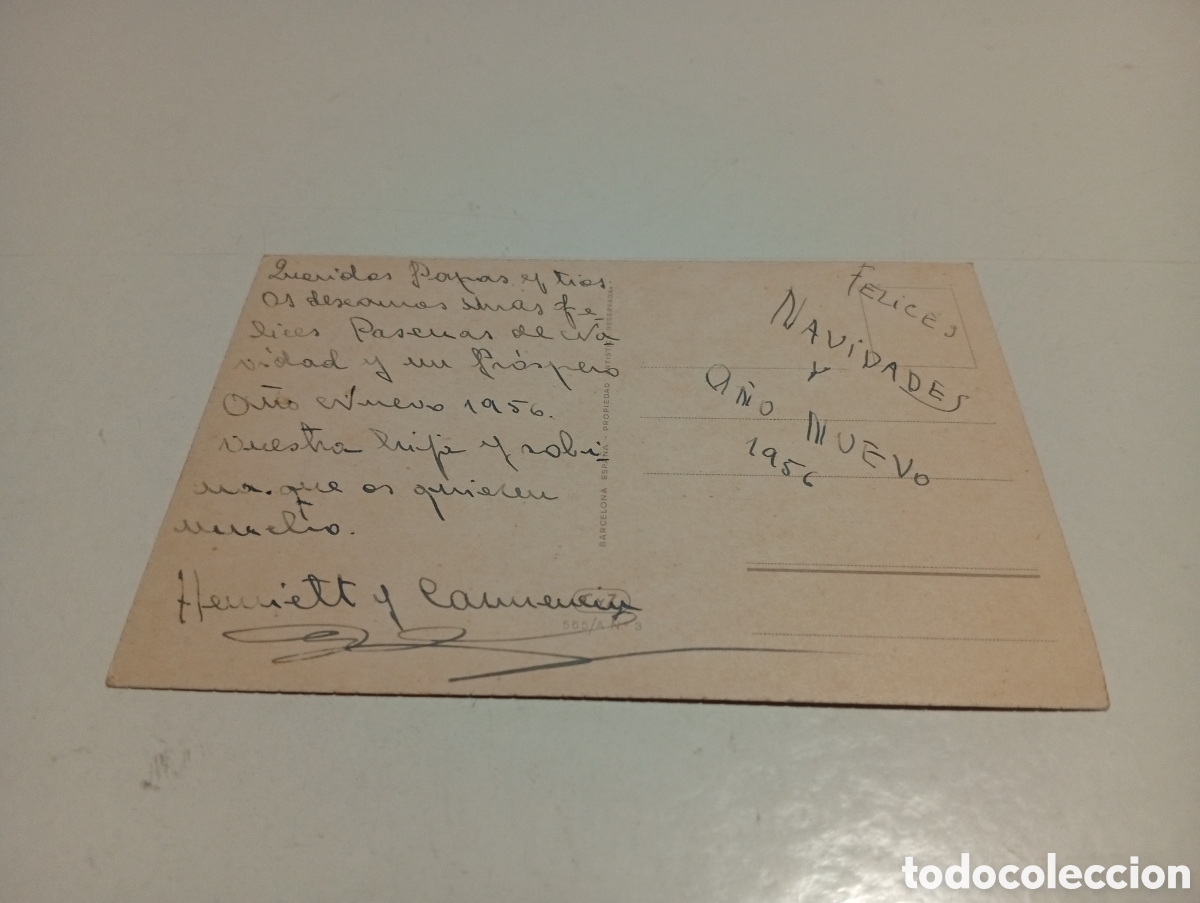 Queridos Papas y tios
os deseamos unas fe
lices Pascuas de Na
vidad y un Próspero
Año Nuevo 1956.
vuestra hija y sobri-
na. que os quieren
mucho.
Henriett y
BARCELONA ESPAÑA - PROPIEDAD ARTISTICA RESERVADA
CyZ
565/A Nº 3
FELICES
NAVIDADES
Y
AÑO NUEVO
1956
todocoleccion